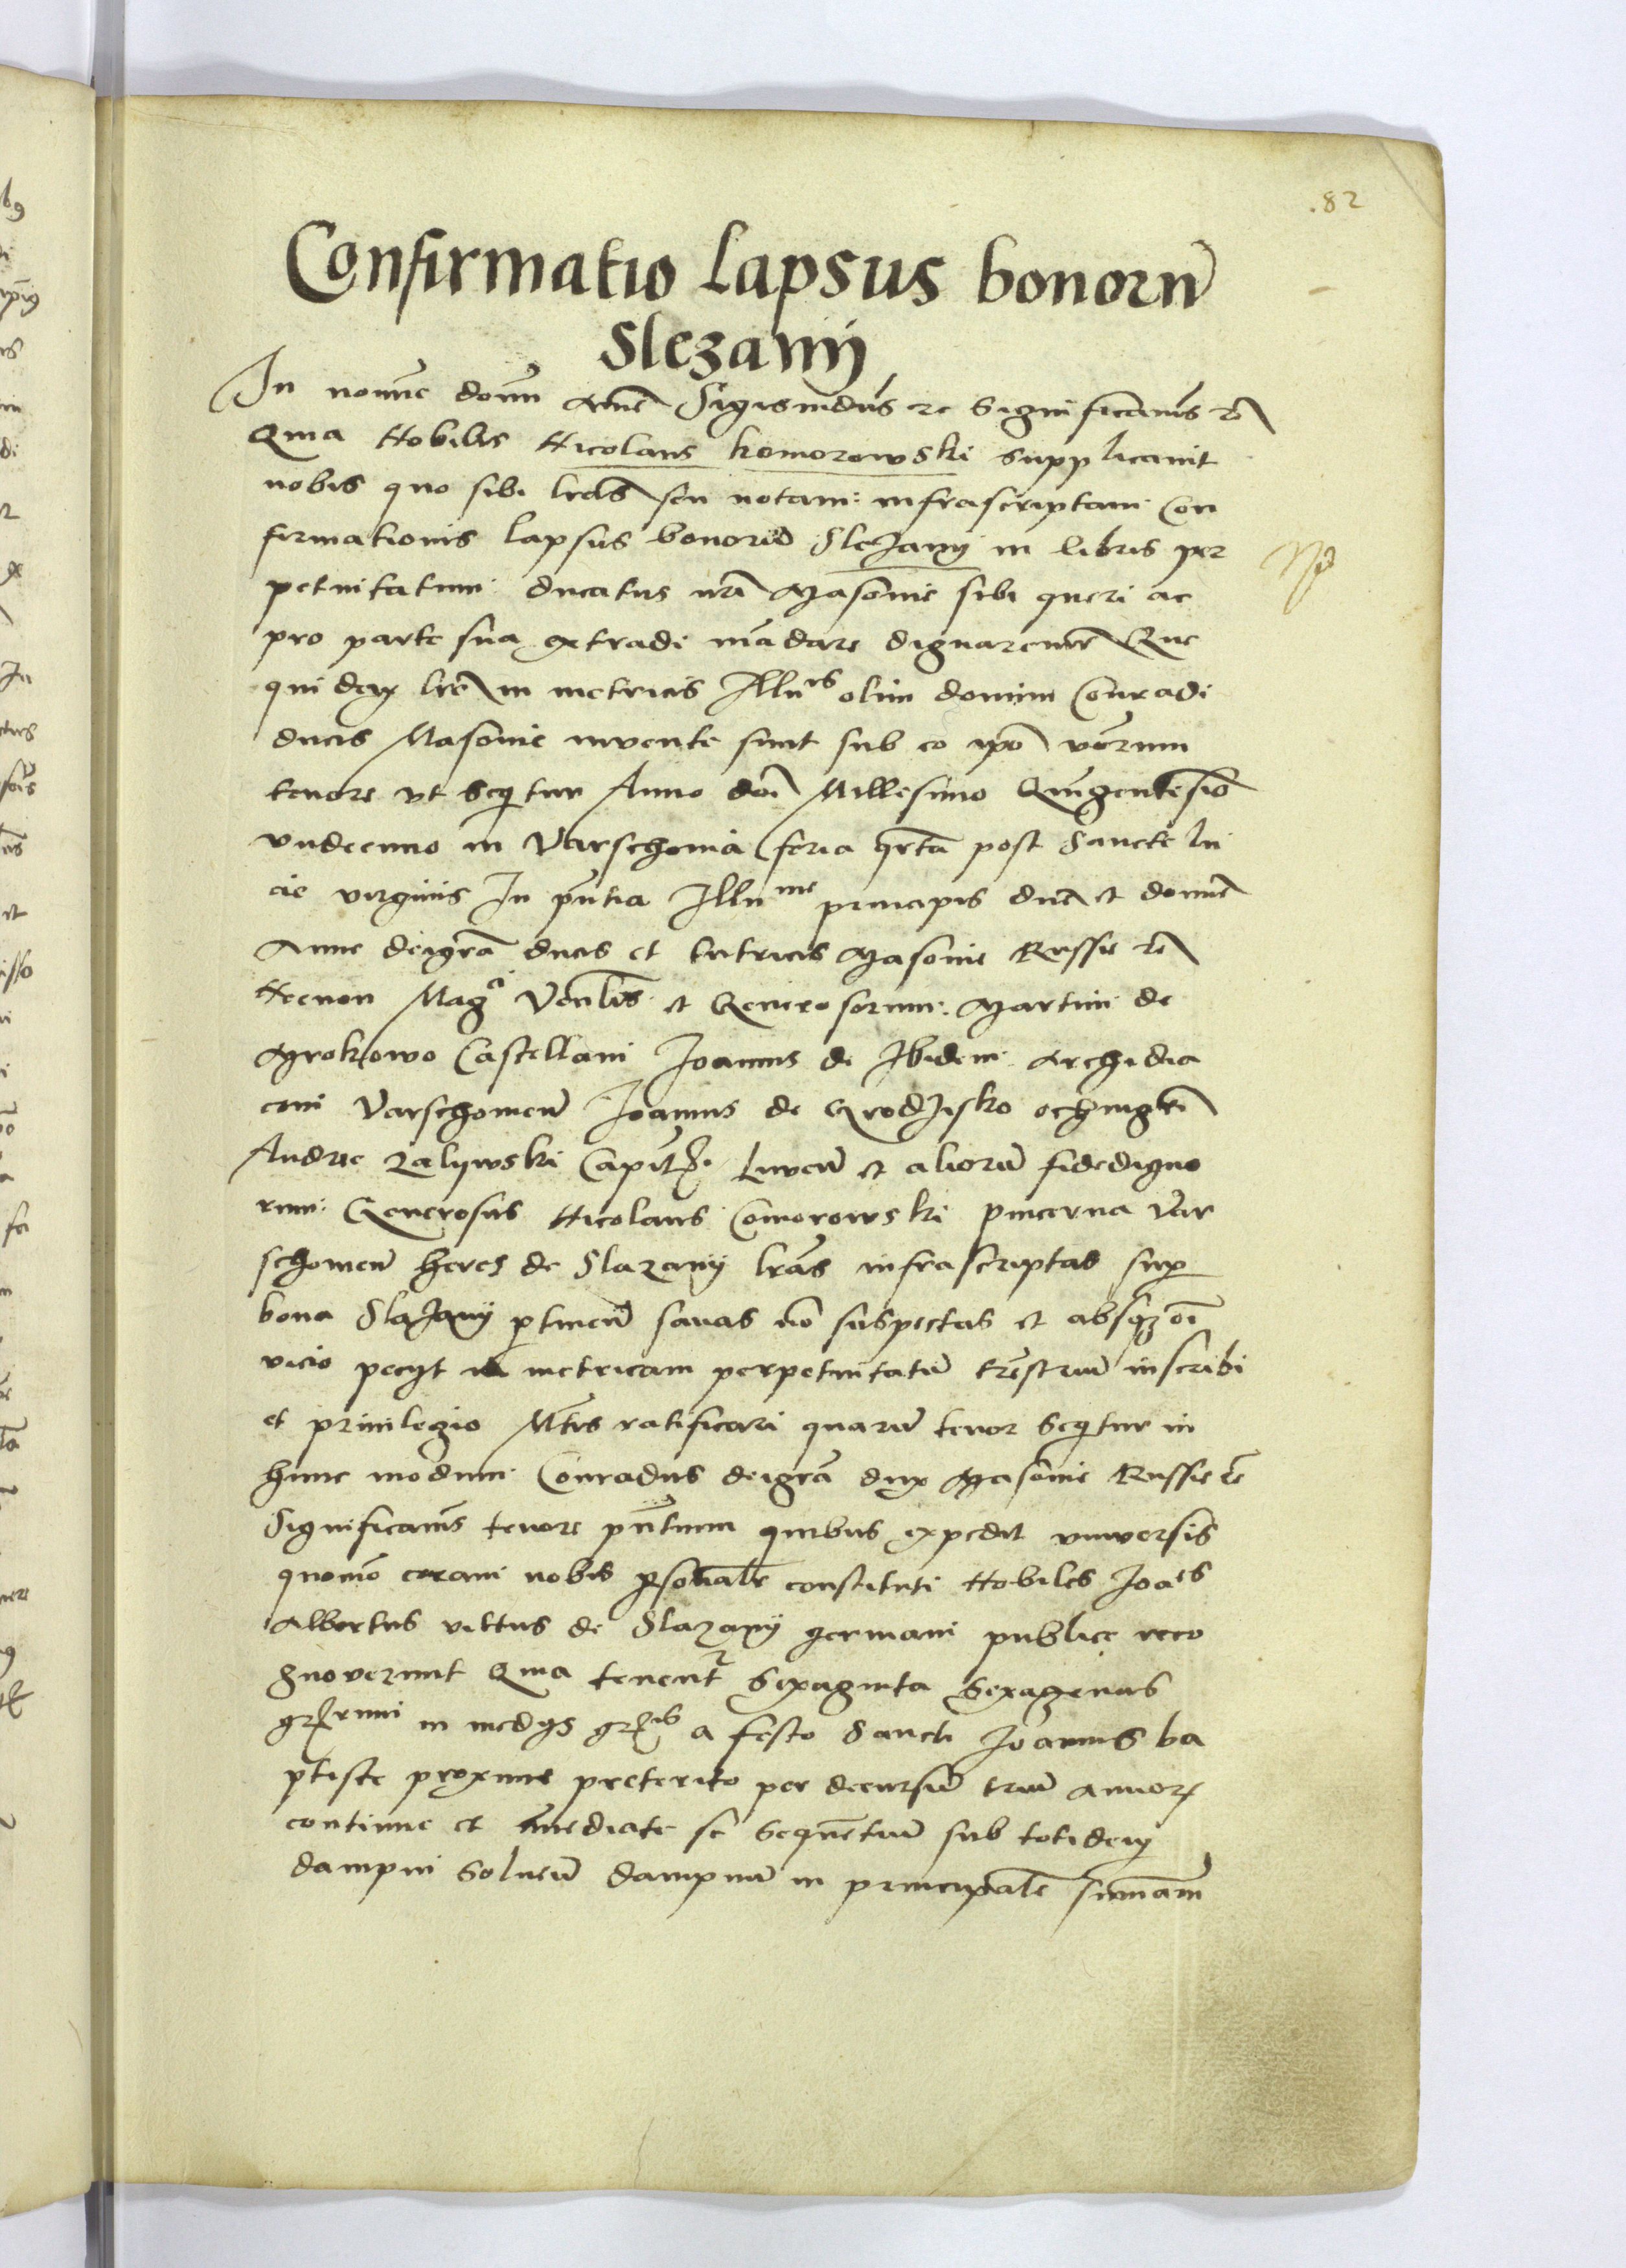 .82
Confirmatio Lapsus bonorũ
Slezany
In nomine domini Amẽ Sigismũdus rc Significamus rc
Quia Nobilis Nicolaus Komorowski supplicauit
nobis quo sibi lr̃as seu notam infrascriptam Con
firmationis lapsus bonorũ Slezany in libris per
petuitatum ducatus nr̃i Masouie sibi queri ac
pro parte sua extradi mãdare dignaremur Que
quidem lr̃e in metricis Illmis olim domini Conradi
ducis Masouie inuente sunt sub eo ip̃o verum
tenore vt Sequitur Anno dni Millesimo Quingentesimo
vndecimo in Varschouia feria qrta post Sancte lu
cie virginis In pñtia Illme principis dne et domine
Anne deigrã ducis et tutricis Masouie Russie rc
Necnon Magci Venlis et Generosorum Martini de
Mrokowo Castellani Joannis de Ibidem Archidia
coni Varschouieñ Joannis de Grodzisko
Andree Zalywski Capit. Liweñ et aliorũ fidedigno
rum Generosus Nicolaus Comorowski pincerna Var
schouieñ heres de Slazany lrãs infrascriptas sup
bona Slazany ptineñ sanas nõ suspectas et absqz oĩ
vicio pecyt in metricam perpetuitatũ trẽstriũ inscribi
et priuilegio nr̃is ratificari quarũ tenor Sequitur in
hunc modum Conradus deigrã dux Masouie Russie rc
Significamus tenore pñtium quibus expedit vniuersis
quomõ coram nobis psonalr constituti Nobiles Joães
Albertus vittus de Slazany germani publice reco
gnouerunt Quia tenentr Sexaginta Sexagenas
grrum in medijs gris a festo Sancti Joannis ba
ptiste proxime preterito per decursũ triũ annor
continue et imediate se Sequẽtiũ sub totidem
dampni Solueñ dampnũ in principalẽ summam